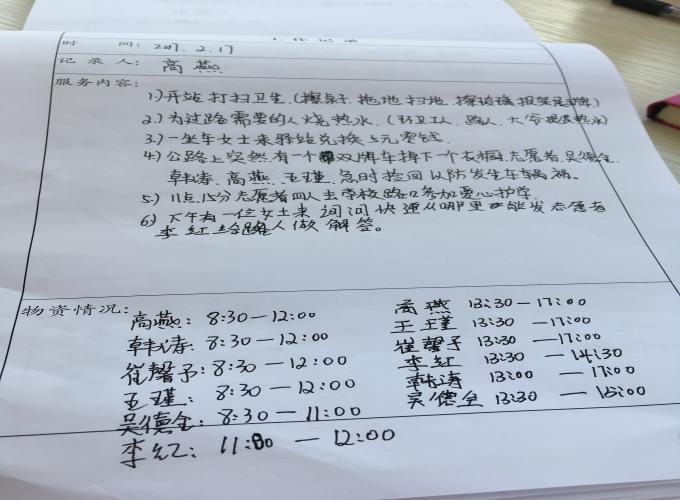 工作记录
时 间: 2017.2.17
记 录 人: 高燕
服务内容:
1)开站打扫卫生.(擦桌子 拖地 扫地 擦玻璃 报架
2.)为过路需要的人烧热水.(环卫工人 路人. 大爷提供热水)
3.)一坐车女士来驿站兑换5元零钱.
4)公路上突然有一个双牌车掉下一个衣橱.志愿者吴德全.
韩涛、高燕.王瑾.急时捡回以防发生车辆祸。
5.)11点15分志愿者四人去学校路口参加爱心护学.
6)下午有一位女士来询问快递从哪里能发志愿者
李红给路人做解答。
物资情况:
高燕: 8:30—12:00
韩涛: 8:30—12:00
崔馨予: 8:30—12:00
王瑾: 8:30—12:00
吴德全: 8:30—11:00
李红: 11:00—12:00
高燕 13:30—17:00
王瑾 13:30—17:00
崔馨予 13:30—17:00
李红 13:30—14:30
韩涛 13:00—17:00
吴德全 13:30—15:00